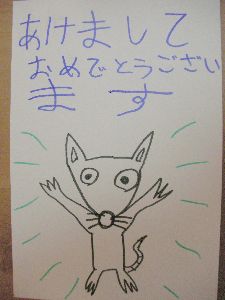 あけまして
おめでとうござい
ます